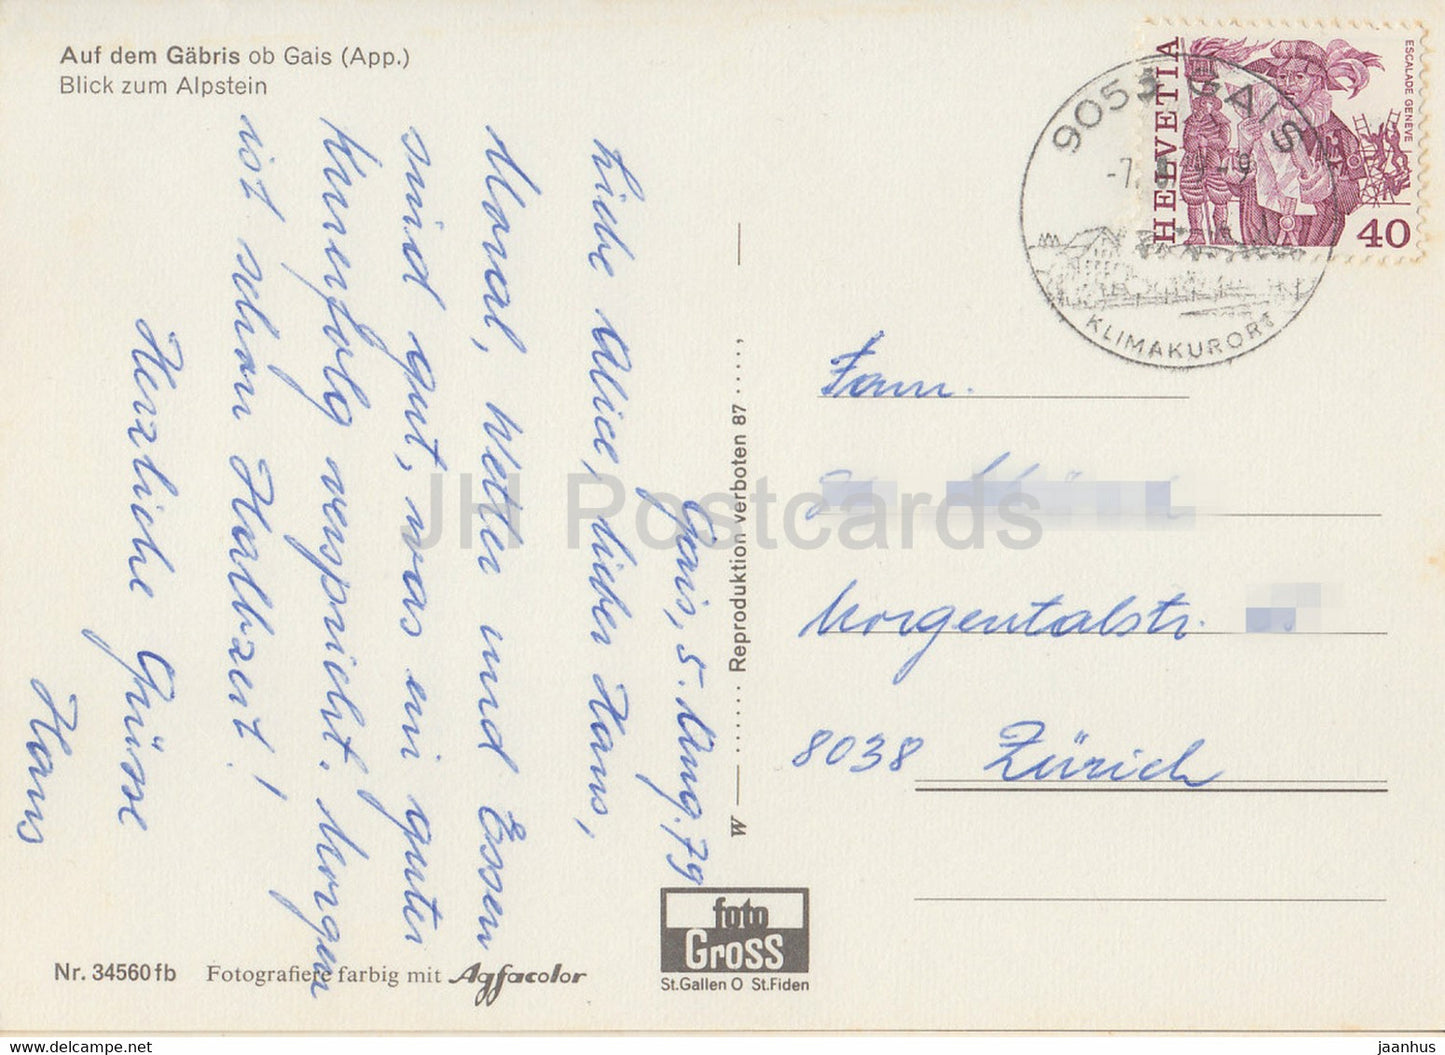 Auf dem Gäbris ob Gais (App.)
Blick zum Alpstein
Gais, 5. Aug. 79
Liebe Alice, lieber Hans,
Monal, Wetter und Essen
sind gut, was ein guter
Kurerfolg verspricht. Morgen
ist schon Halbzeit!
Herzliche Grüsse
Hans
Nr. 34560 fb Fotografiere farbig mit Agfacolor
W Reproduktion verboten 87
foto
Gross
St.Gallen O St.Fiden
HELVETIA
ESCALADE GENÈVE
40
9053 GAIS
KLIMAKURORT
Fam.
Morgentalstr.
8038 Zürich
JH Postcards
www.delcampe.net
jaanhus